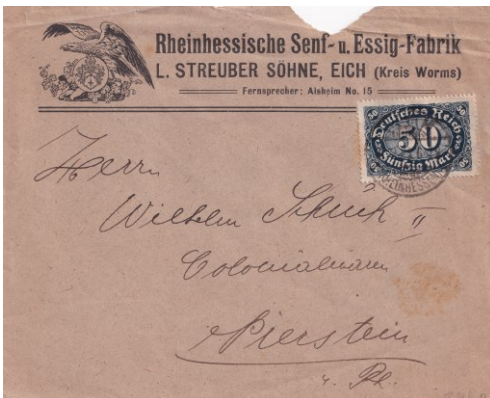 Rheinhessische Senf- u. Essig-Fabrik
L. STREUBER SÖHNE, EICH (Kreis Worms)
Fernsprecher: Alsheim No. 15
50 50
Deutsches Reich
50
Fünfzig Mark
Herrn
Wilhelm Schuch II
Colonialwaren
Nierstein
a. Rh.